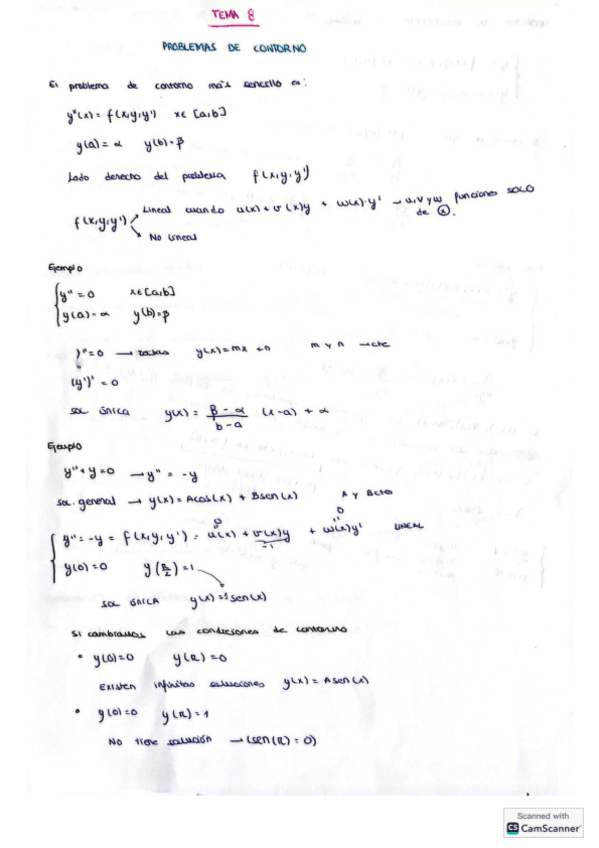 TEMA 8
PROBLEMAS DE CONTORNO
El problema de contorno más sencillo es:
y''(x) = f(x,y,y') x∈ [a,b]
y(a) = α y(b) = β
Lado derecho del problema f(x,y,y')
f(x,y,y') Lineal cuando u(x) + v(x)y + w(x)·y' → u, v y w funciones SOLO de x.
No lineal
Ejemplo
y'' = 0 x∈[a,b]
y(a) = α y(b) = β
y'' = 0 → rectas y(x) = mx + n m y n → cte
(y')' = 0
sol única y(x) = β - α / b - a (x-a) + α
Ejemplo
y'' + y = 0 → y'' = -y
sol. general → y(x) = Acos(x) + Bsen(x) A y B ctes
y'' = -y = f(x,y,y') = u(x) + v(x)y + w(x)y' LINEAL
0 -1 0
y(0) = 0 y(π/2) = 1
sol ÚNICA y(x) = 1sen(x)
Si cambiamos las condiciones de contorno
• y(0) = 0 y(π) = 0
Existen infinitas soluciones y(x) = Asen(x)
• y(0) = 0 y(π) = 1
No tiene solución → (sen(π) = 0)
Scanned with
CS CamScanner